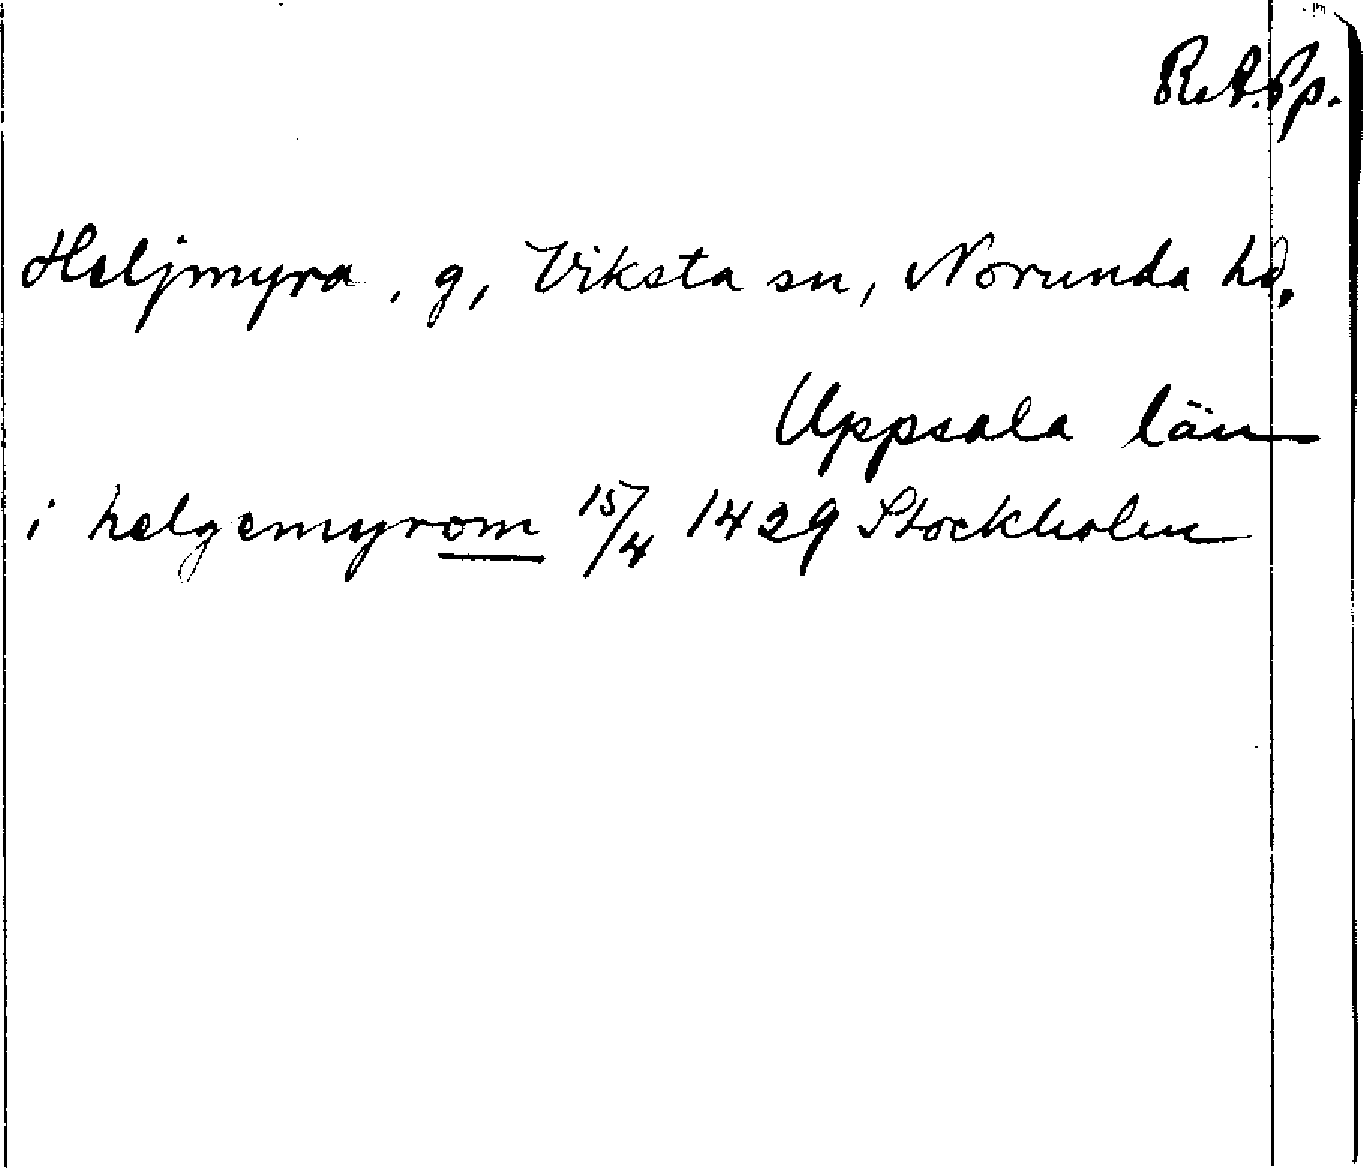 R.A.Pp.
Heljmyra, g, Viksta sn, Norunda hd.
Uppsala län
i helgemyrom 15/4 1429 Stockholm